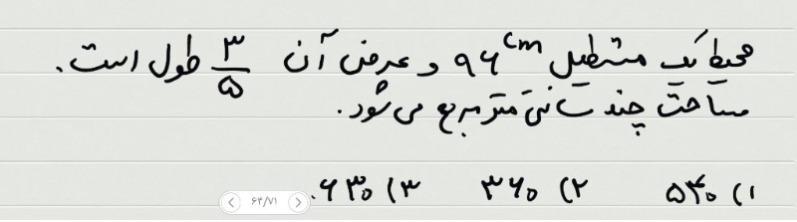 محیط یک مستطیل ۹۶ cm و عرض آن ۳/۵ طول است.
مساحت چند سانتی متر مربع می شود.
۱) ۵۴۰ ۲) ۳۶۰ ۳) ۶۳۰
۶۴/۷۱